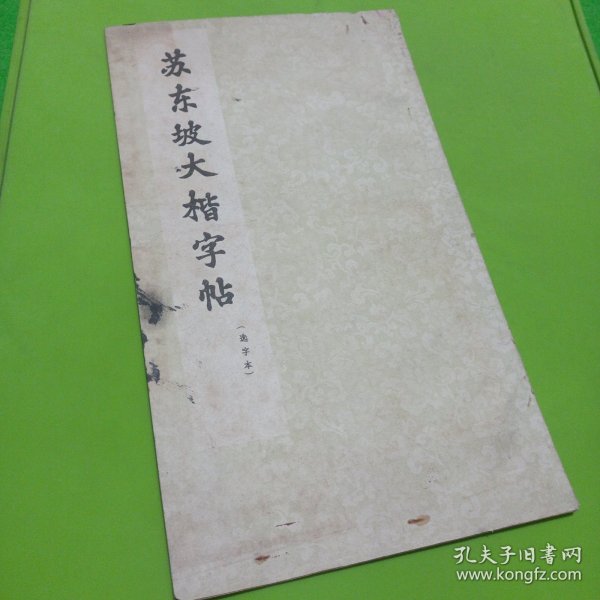 苏东坡大楷字帖
（选字本）
孔夫子旧書网
www.kongfz.com